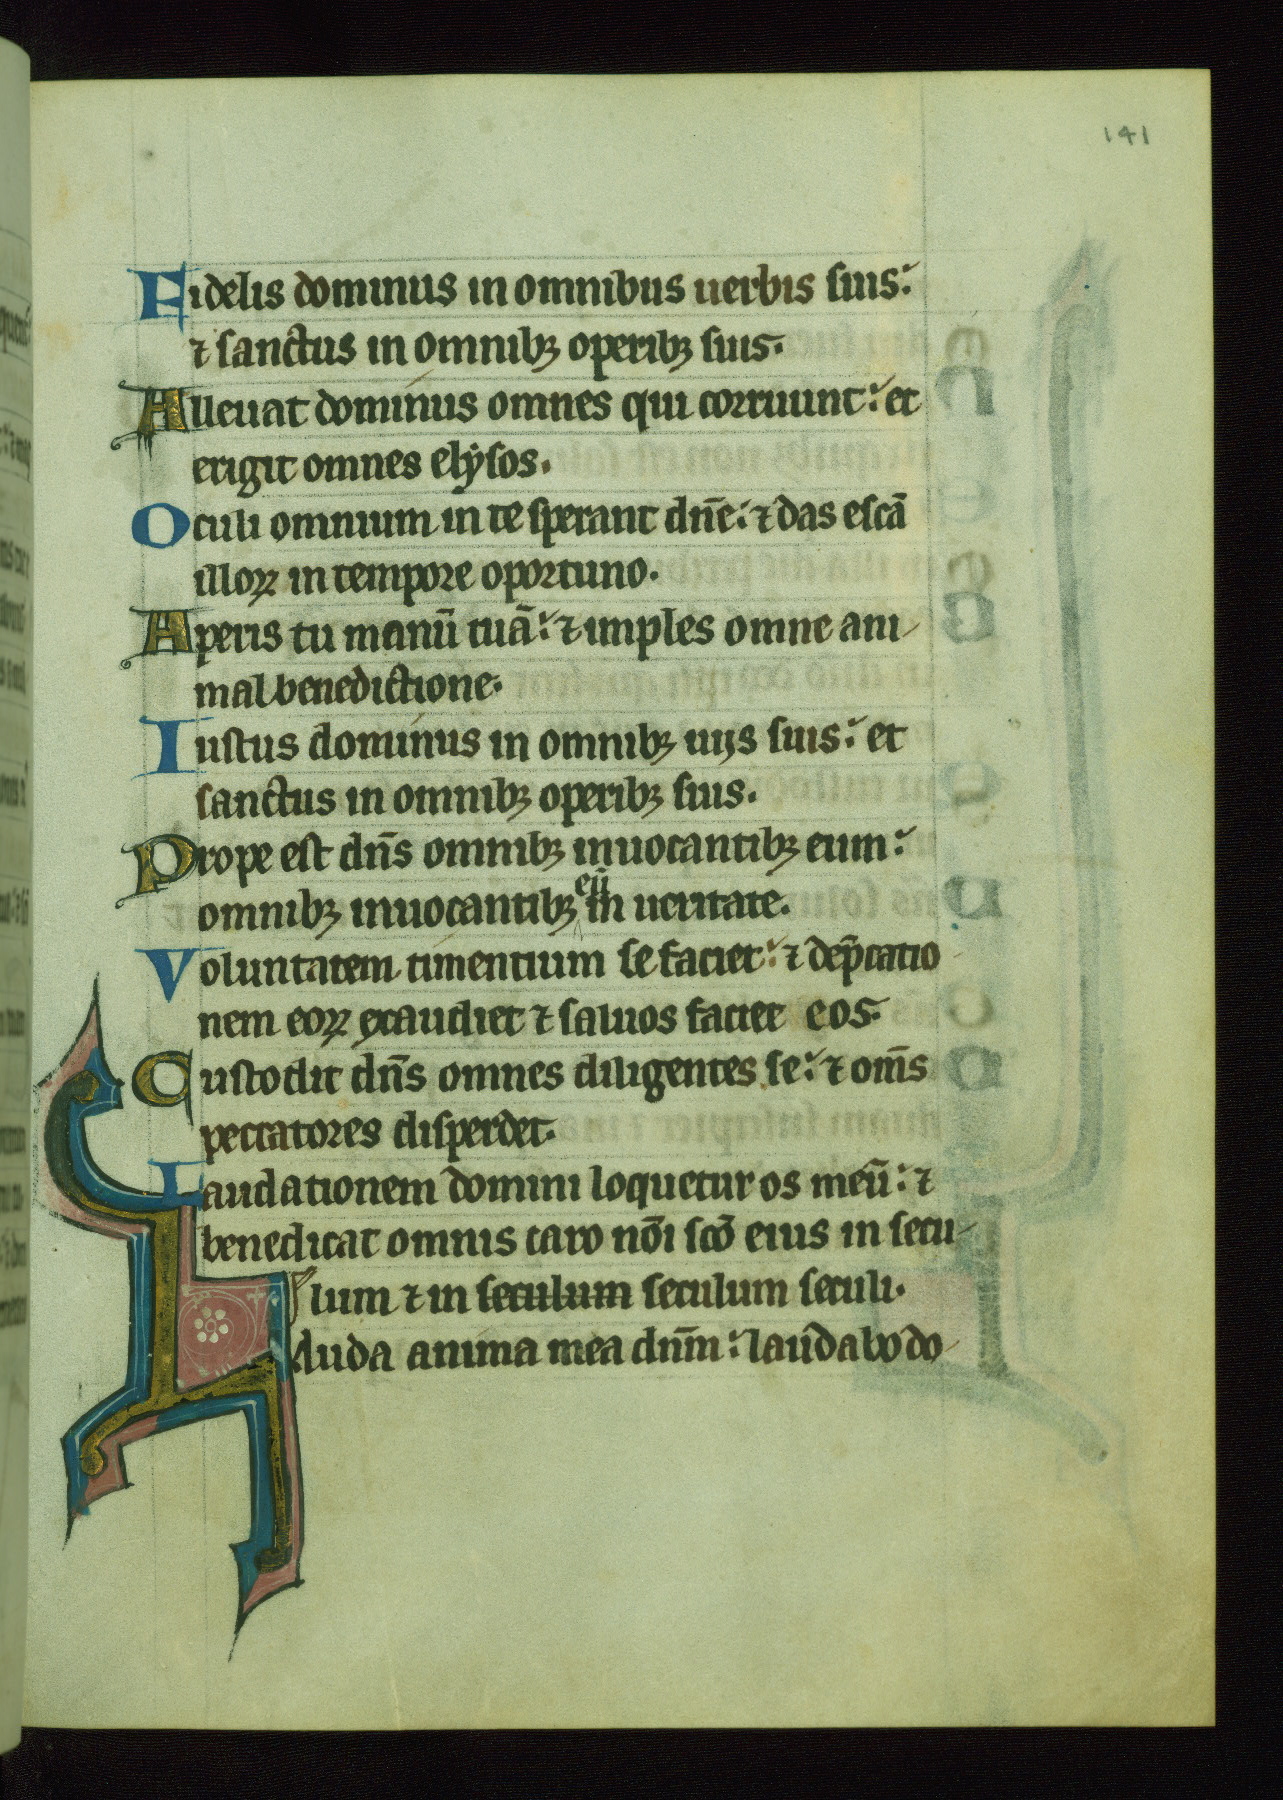 141
Fidelis dominus in omnibus uerbis suis:
⁊ sanctus in omnibꝫ operibꝫ suis.
Alleuat dominus omnes qui corruunt: et
erigit omnes elysos.
Oculi omnium in te sperant dn̄e: ⁊ das escā
illoꝝ in tempore oportuno.
Aperis tu manū tuā: ⁊ imples omne ani
mal benedictione.
Iustus dominus in omnibꝫ uijs suis: et
sanctus in omnibꝫ operibꝫ suis.
Prope est dn̄s omnibꝫ inuocantibꝫ eum:
omnibꝫ inuocantibꝫ eū in ueritate.
Voluntatem timentium se faciet: ⁊ dep̄catio
nem eoꝝ exaudiet ⁊ saluos faciet eos.
Custodit dn̄s omnes diligentes se: ⁊ om̄s
peccatores disperdet.
Laudationem domini loquetur os meū: ⁊
benedicat omnis caro nōi scō eius in secu
lum ⁊ in seculum seculum seculi.
Auda anima mea dnm̄: laudabo do